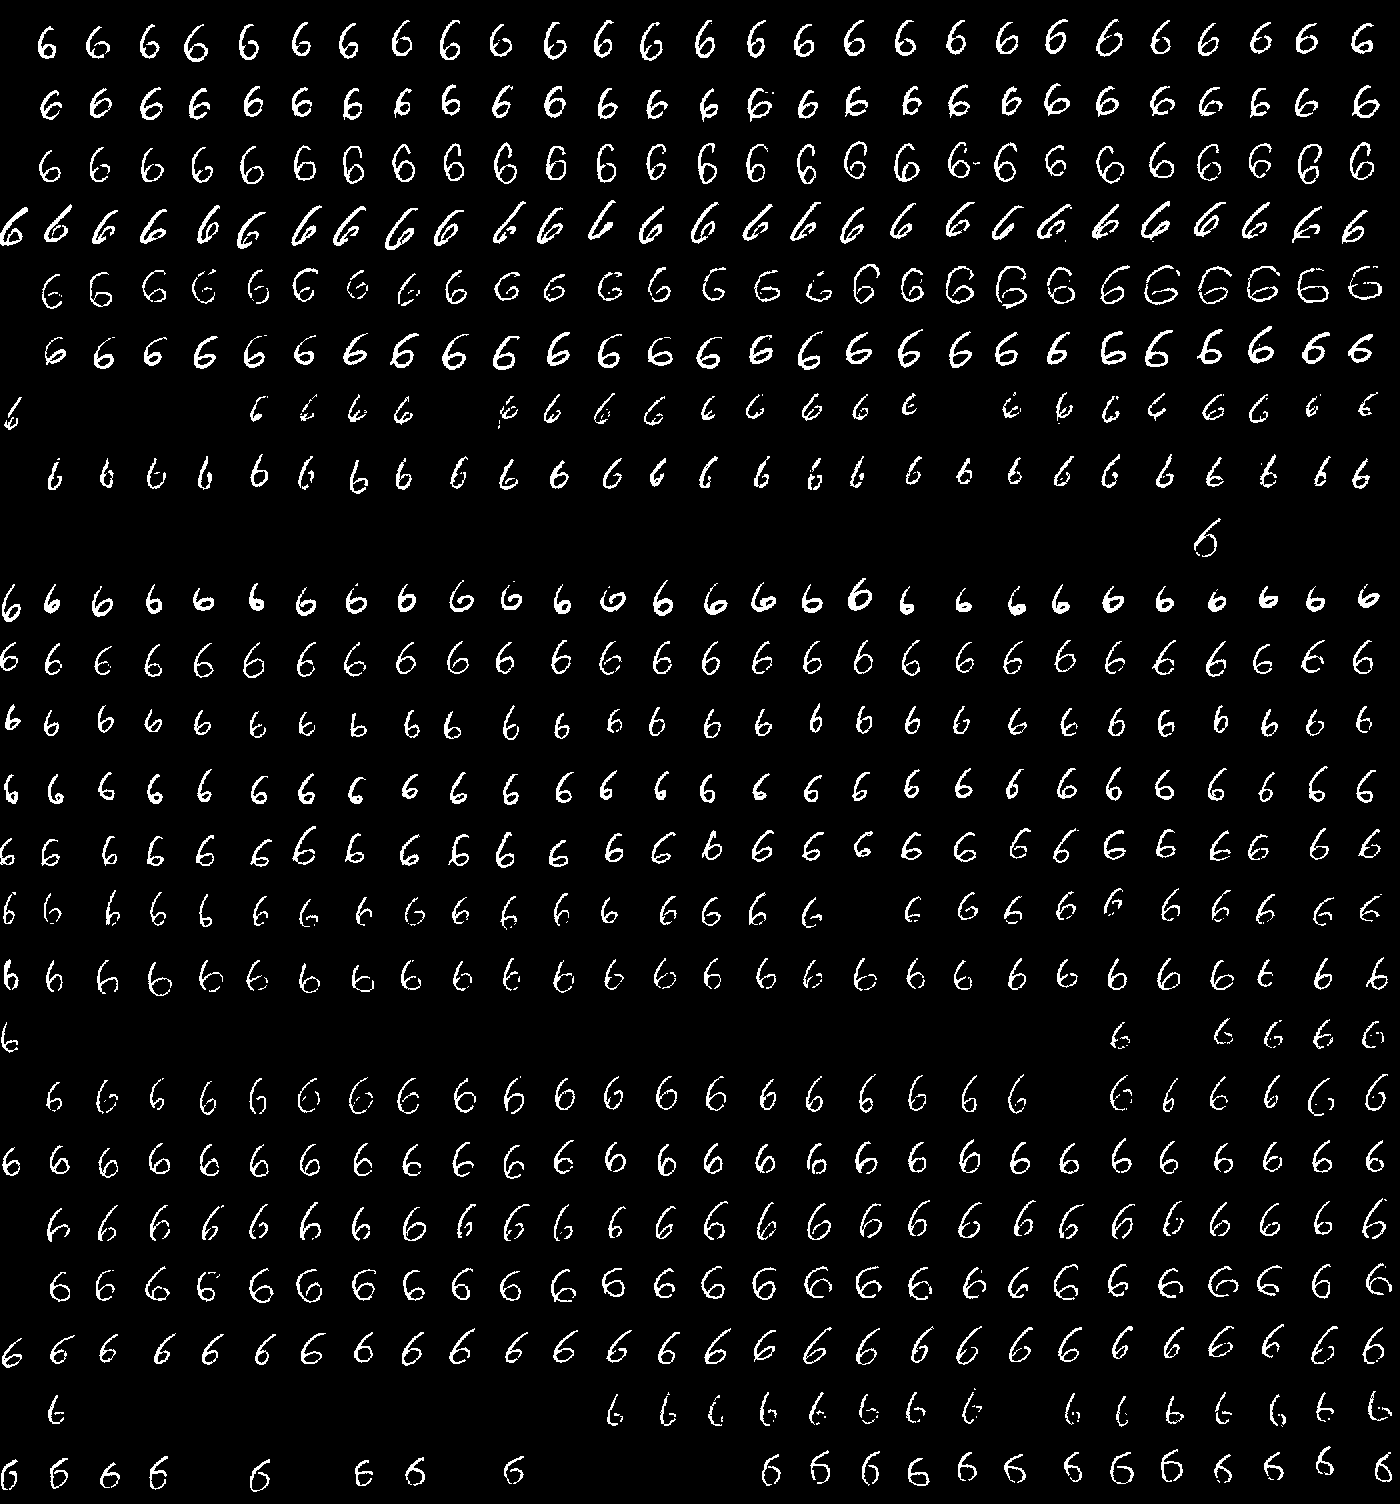 6 6 6 6 6 6 6 6 6 6 6 6 6 6 6 6 6 6 6 6 6 6 6 6 6 6 6
6 6 6 6 6 6 6 6 6 6 6 6 6 6 6 6 6 6 6 6 6 6 6 6 6 6 6
6 6 6 6 6 6 6 6 6 6 6 6 6 6 6 6 6 6 6 6 6 6 6 6 6 6 6
6 6 6 6 6 6 6 6 6 6 6 6 6 6 6 6 6 6 6 6 6 6 6 6 6 6 6 6
6 6 6 6 6 6 6 6 6 6 6 6 6 6 6 6 6 6 6 6 6 6 6 6 6 6 6
6 6 6 6 6 6 6 6 6 6 6 6 6 6 6 6 6 6 6 6 6 6 6 6 6 6 6
6 6 6 6 6 6 6 6 6 6 6 6 6 6 6 6 6 6 6 6 6 6
6 6 6 6 6 6 6 6 6 6 6 6 6 6 6 6 6 6 6 6 6 6 6 6 6 6 6
6
6 6 6 6 6 6 6 6 6 6 6 6 6 6 6 6 6 6 6 6 6 6 6 6 6 6 6 6
6 6 6 6 6 6 6 6 6 6 6 6 6 6 6 6 6 6 6 6 6 6 6 6 6 6 6 6
6 6 6 6 6 6 6 6 6 6 6 6 6 6 6 6 6 6 6 6 6 6 6 6 6 6 6 6
6 6 6 6 6 6 6 6 6 6 6 6 6 6 6 6 6 6 6 6 6 6 6 6 6 6 6 6
6 6 6 6 6 6 6 6 6 6 6 6 6 6 6 6 6 6 6 6 6 6 6 6 6 6 6 6
6 6 6 6 6 6 6 6 6 6 6 6 6 6 6 6 6 6 6 6 6 6 6 6 6 6 6
6 6 6 6 6 6 6 6 6 6 6 6 6 6 6 6 6 6 6 6 6 6 6 6 6 6 6 6
6 6 6 6 6 6
6 6 6 6 6 6 6 6 6 6 6 6 6 6 6 6 6 6 6 6 6 6 6 6 6 6
6 6 6 6 6 6 6 6 6 6 6 6 6 6 6 6 6 6 6 6 6 6 6 6 6 6 6 6
6 6 6 6 6 6 6 6 6 6 6 6 6 6 6 6 6 6 6 6 6 6 6 6 6 6 6
6 6 6 6 6 6 6 6 6 6 6 6 6 6 6 6 6 6 6 6 6 6 6 6 6 6 6
6 6 6 6 6 6 6 6 6 6 6 6 6 6 6 6 6 6 6 6 6 6 6 6 6 6 6 6
6 6 6 6 6 6 6 6 6 6 6 6 6 6 6 6
6 6 6 6 6 6 6 6 6 6 6 6 6 6 6 6 6 6 6 6 6